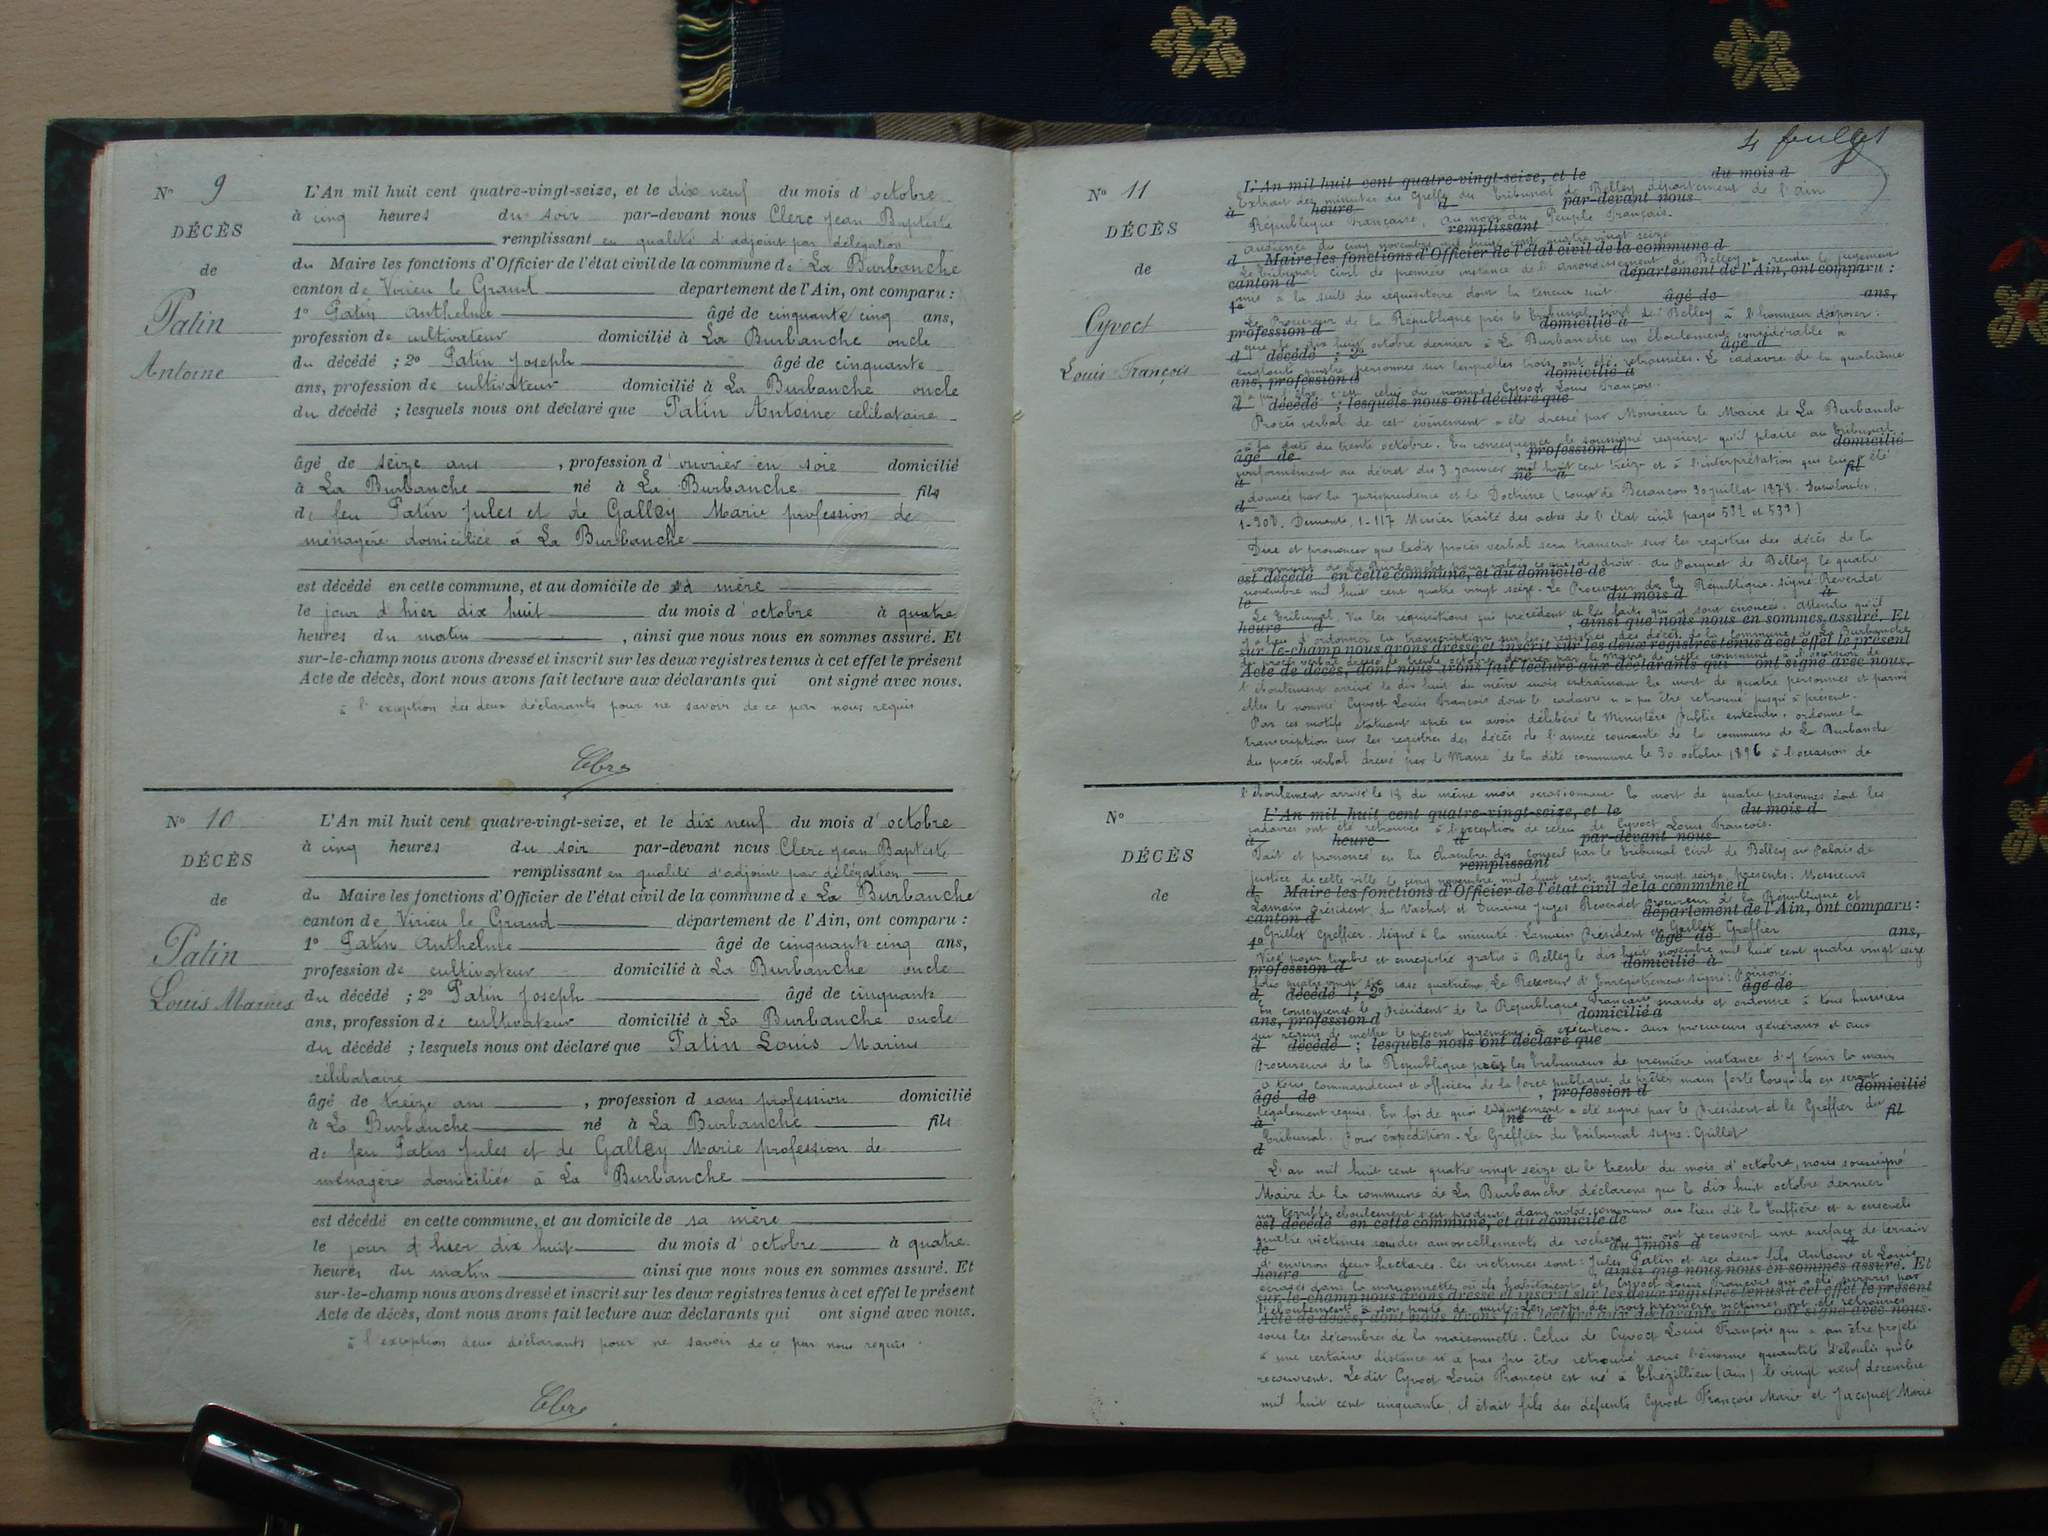 N° 9
DÉCÈS
de
Patin
Antoine
L'An mil huit cent quatre-vingt-seize, et le dix neuf du mois d'octobre
à cinq heures du soir par-devant nous Clerc Jean Baptiste
remplissant en qualité d'adjoint par délégation
du Maire les fonctions d'Officier de l'état civil de la commune de La Burbanche
canton de Virieu le Grand département de l'Ain, ont comparu :
1° Patin Anthelme âgé de cinquante cinq ans,
profession de cultivateur domicilié à La Burbanche oncle
du décédé ; 2° Patin Joseph âgé de cinquante
ans, profession de cultivateur domicilié à La Burbanche oncle
du décédé ; lesquels nous ont déclaré que Patin Antoine célibataire
âgé de seize ans , profession d'ouvrier en soie domicilié
à La Burbanche né à La Burbanche fils
de feu Patin Jules et de Galley Marie profession de
ménagère domiciliée à La Burbanche
est décédé en cette commune, et au domicile de sa mère
le jour d'hier dix huit du mois d'octobre à quatre
heures du matin , ainsi que nous nous en sommes assuré. Et
sur-le-champ nous avons dressé et inscrit sur les deux registres tenus à cet effet le présent
Acte de décès, dont nous avons fait lecture aux déclarants qui ont signé avec nous.
à l'exception des deux déclarants pour ne savoir de ce par nous requis
N° 10
DÉCÈS
de
Patin
Louis Marius
L'An mil huit cent quatre-vingt-seize, et le dix neuf du mois d'octobre
à cinq heures du soir par-devant nous Clerc Jean Baptiste
remplissant en qualité d'adjoint par délégation
du Maire les fonctions d'Officier de l'état civil de la commune de La Burbanche
canton de Virieu le Grand département de l'Ain, ont comparu :
1° Patin Anthelme âgé de cinquante cinq ans,
profession de cultivateur domicilié à La Burbanche oncle
du décédé ; 2° Patin Joseph âgé de cinquante
ans, profession de cultivateur domicilié à La Burbanche oncle
du décédé ; lesquels nous ont déclaré que Patin Louis Marius
célibataire
âgé de treize ans , profession d sans profession domicilié
à La Burbanche né à La Burbanche fils
de feu Patin Jules et de Galley Marie profession de
ménagère domiciliée à La Burbanche
est décédé en cette commune, et au domicile de sa mère
le jour d'hier dix huit du mois d'octobre à quatre
heures du matin ainsi que nous nous en sommes assuré. Et
sur-le-champ nous avons dressé et inscrit sur les deux registres tenus à cet effet le présent
Acte de décès, dont nous avons fait lecture aux déclarants qui ont signé avec nous.
à l'exception deux déclarants pour ne savoir de ce par nous requis
4 feuillet
N° 11
DÉCÈS
de
Cyvoct
Louis François
L'An mil huit cent quatre-vingt-seize, et le du mois d
Extrait des minutes du Greffe du Tribunal de Belley département de l'Ain
à heure d par-devant nous
République Française, au nom du Peuple Français.
remplissant
audience du cinq novembre mil huit cent quatre vingt seize
d Maire les fonctions d'Officier de l'état civil de la commune d
Le Tribunal civil de première instance de l'arrondissement de Belley a rendu le jugement
canton d département de l'Ain, ont comparu :
mis à la suite du requisitoire dont la teneur suit
1° âgé de ans,
Le Procureur de la République près le Tribunal civil de Belley a l'honneur d'exposer :
profession d domicilié à
que le dix huit octobre dernier à La Burbanche un éboulement considérable a
d décédé ; 2° âgé d
englouti quatre personnes sur lesquelles trois ont été retrouvées. Le cadavre de la quatrième
ans, profession d domicilié à
n'a pu l'être c'est celui du nommé Cyvoct Louis François.
d décédé ; lesquels nous ont déclaré que
Procès verbal de cet évènement a été dressé par Monsieur le Maire de La Burbanche
à la date du trente octobre. En conséquence le soussigné requiert qu'il plaise au Tribunal
âgé de , profession d domicilié
conformément au décret du 3 janvier mil huit cent treize et à l'interprétation qui lui a été
à né à fil
donnée par la jurisprudence et la Doctrine (cour de Besançon 30 juillet 1878. Demolombe.
d
1-308. Demante, 1-117 Mersier traité des actes de l'état civil pages 532 et 533)
Dire et prononcer que ledit procès verbal sera transcrit sur les registres des décès de la
commune de La Burbanche pour valoir ce que de droit. Au Parquet de Belley le quatre
est décédé en cette commune, et au domicile de
novembre mil huit cent quatre vingt seize. Le Procureur de la République. signé Reverdet
le du mois d à
Le Tribunal. Vu les réquisitions qui précédent et les faits qui y sont énoncés. Attendu qu'il
heure d , ainsi que nous nous en sommes assuré. Et
y a lieu d'ordonner la transcription sur les registres des décès de la commune de La Burbanche
sur-le-champ nous avons dressé et inscrit sur les deux registres tenus à cet effet le présent
du procès verbal dressé le trente octobre dernier par le Maire de cette commune, à l'occasion de
Acte de décès, dont nous avons fait lecture aux déclarants qui ont signé avec nous.
l'éboulement arrivé le dix huit du même mois entraînant la mort de quatre personnes et parmi
elles le nommé Cyvoct Louis François dont le cadavre n'a pu être retrouvé jusqu'à présent.
Par ces motifs statuant après en avoir délibéré le Ministère public entendu, ordonne la
transcription sur les registres des décès de l'année courante de la commune de La Burbanche
du procès verbal dressé par le Maire de la dite commune le 30 octobre 1896 à l'occasion de
l'éboulement arrivé le 18 du même mois occasionnant la mort de quatre personnes dont les
N°
DÉCÈS
de
L'An mil huit cent quatre-vingt-seize, et le du mois d
cadavres ont été retrouvés à l'exception de celui de Cyvoct Louis François.
à heure d par-devant nous
Fait et prononcé en la chambre du conseil par le Tribunal Civil de Belley au Palais de
remplissant
justice de cette ville le cinq novembre mil huit cent quatre vingt seize, présents : Messieurs
d Maire les fonctions d'Officier de l'état civil de la commune d
Lamain Président, du Vachat et juges Reverdet procureur de la République et
canton d département de l'Ain, ont comparu :
Grillet Greffier. signé à la minute : Lamain Président et Grillet Greffier
1° âgé de ans,
Visé pour timbre et enregistré gratis à Belley le dix huit novembre mil huit cent quatre vingt seize
profession d domicilié à
folio quatre vingt six case quatrième. Le Receveur d'Enregistrement signé : Poirson.
d décédé ; 2° âgé de
En conséquence le Président de la République Française mande et ordonne à tous huissiers
ans, profession d domicilié à
sur requis de mettre le présent jugement à exécution. Aux procureurs généraux et aux
d décédé ; lesquels nous ont déclaré que
Procureurs de la République près les tribunaux de première instance d'y tenir la main
à tous commandeurs et officiers de la force publique de prêter main forte lorsqu'ils en seront
âgé de , profession d domicilié
légalement requis. En foi de quoi le jugement a été signé par le Président et le Greffier du
à né à fil
Tribunal. Pour expédition. Le Greffier du Tribunal signé : Grillet
d
L'an mil huit cent quatre vingt seize et le trente du mois d'octobre, nous soussigné
Maire de la commune de La Burbanche, déclarons que le dix huit octobre dernier
un terrible éboulement s'est produit dans notre commune au lieu dit la Tuffière et a enseveli
est décédé en cette commune, et au domicile de
quatre victimes sous des amoncellements de rochers qui ont recouvert une surface de terrain
le du mois d à
d'environ deux hectares. Ces victimes sont : Jules Patin et ses deux fils Antoine et Louis
heure d ainsi que nous nous en sommes assuré. Et
écrasés dans la maisonnette où ils habitaient, et Cyvoct Louis François qui a été surpris par
sur-le-champ nous avons dressé et inscrit sur les deux registres tenus à cet effet le présent
l'éboulement à son poste de nuit. Les corps des trois premières victimes ont été retrouvés
Acte de décès, dont nous avons fait lecture aux déclarants qui ont signé avec nous.
sous les décombres de la maisonnette. Celui de Cyvoct Louis François qui a pu être projeté
à une certaine distance n'a pas pu être retrouvé sous l'énorme quantité d'éboulis qui le
recouvrent. Ledit Cyvoct Louis François est né à Thézillieu (Ain) le vingt neuf décembre
mil huit cent cinquante, il était fils des défunts Cyvoct François Marie et Jacquet Marie